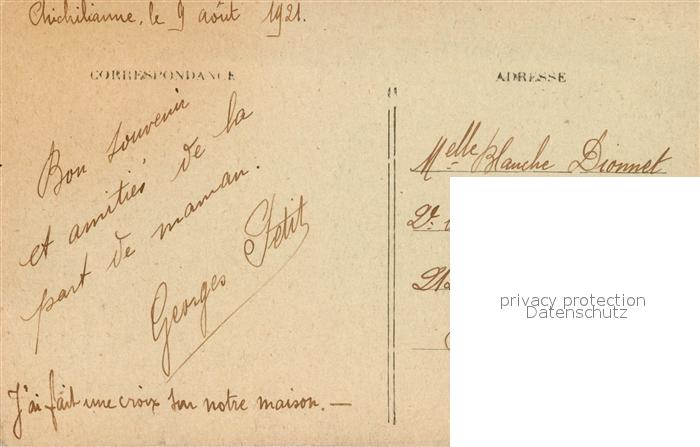 Chichilianne, le 9 août 1921.
CORRESPONDANCE
Bon souvenir
et amitiés de la
part de maman.
Georges Petit
J'ai fait une croix sur notre maison. —
ADRESSE
Melle Blanche Dionnet
privacy protection
Datenschutz